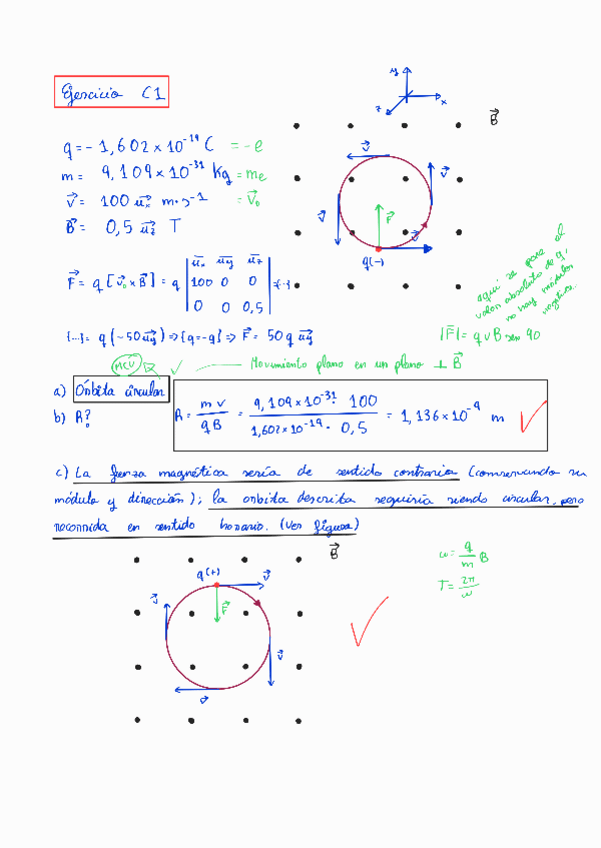 Ejercicio C1
y
x
z
B⃗
q = - 1,602 x 10⁻¹⁹ C = -e
m = 9,109 x 10⁻³¹ Kg = me
v⃗ = 100 u⃗x m·s⁻¹ = v⃗₀
B⃗ = 0,5 u⃗z T
v⃗
v⃗
v⃗
F⃗
v⃗
q(-)
F⃗ = q [v⃗₀ x B⃗] = q | u⃗x u⃗y u⃗z | {...}
100 0 0
0 0 0,5
aquí se pone el
valor absoluto de q,
no hay módulos
negativos.
{...} = q (-50 u⃗y) => {q = -q} => F⃗ = 50 q u⃗y
|F⃗| = q v B sen 90
MCU
Movimiento plano en un plano ⊥ B⃗
a) Orbita circular
b) R?
R = m v / q B = 9,109 x 10⁻³¹ · 100 / 1,602 x 10⁻¹⁹ · 0,5 = 1,136 x 10⁻⁹ m
c) La fuerza magnética sería de sentido contrario (conservando su
módulo y dirección); la orbita descrita seguiría siendo circular, pero
recorrida en sentido horario. (Ver figura)
B⃗
q(+)
v⃗
v⃗
F⃗
v⃗
v⃗
ω = q/m B
T = 2π/ω